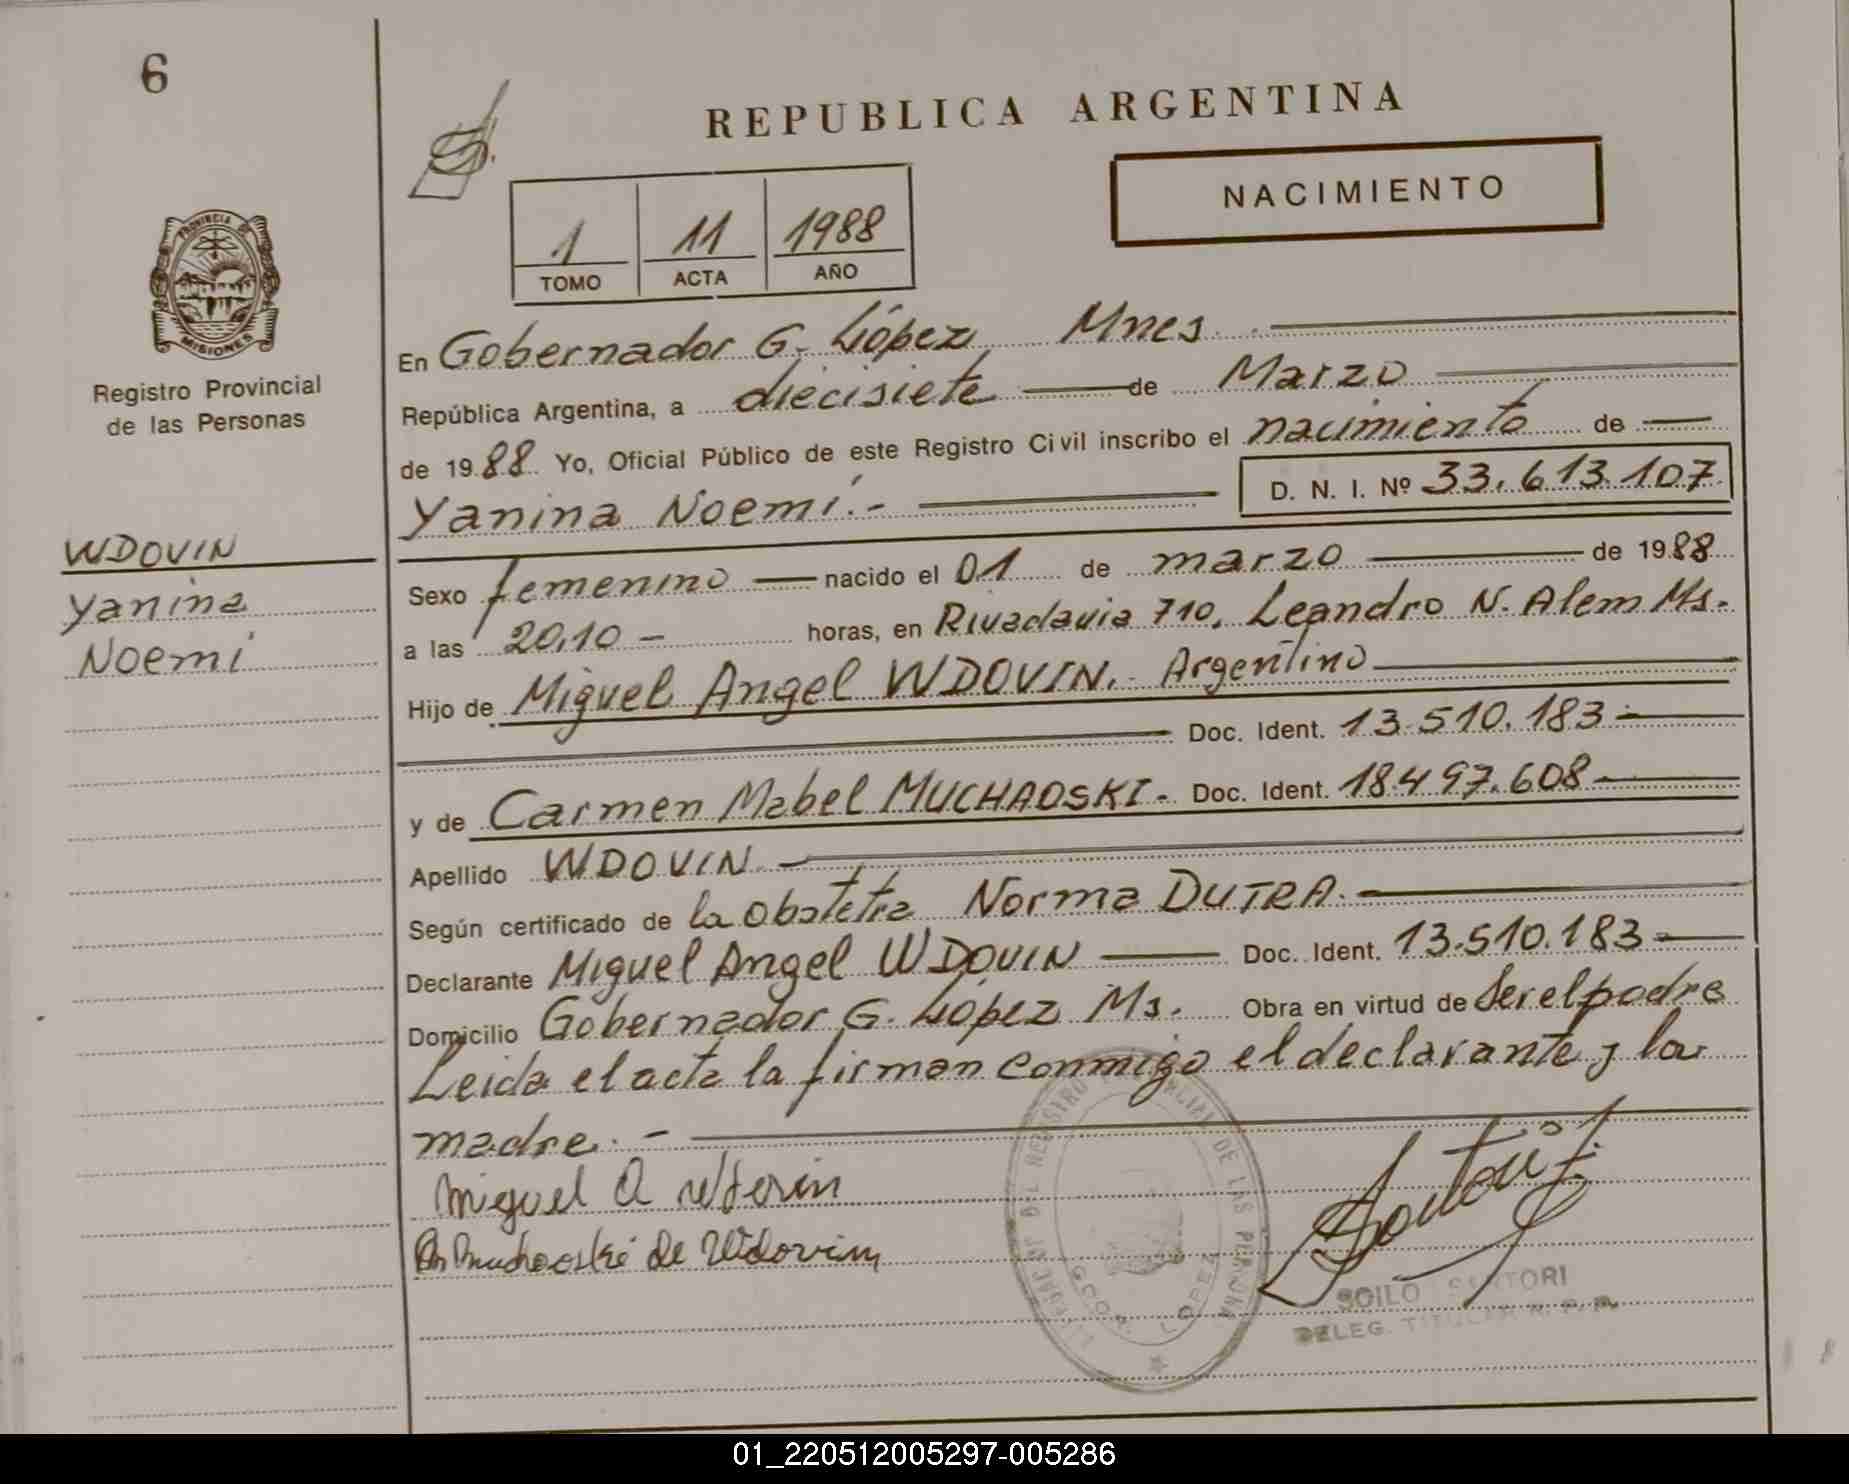 6
REPUBLICA ARGENTINA
NACIMIENTO
1 11 1988
TOMO ACTA AÑO
PROVINCIA DE
MISIONES
Registro Provincial
de las Personas
WDOVIN
Yanina
Noemi
En Gobernador G. López Mnes
República Argentina, a diecisiete de Marzo
de 1988 Yo, Oficial Público de este Registro Civil inscribo el nacimiento de
Yanina Noemí.- D. N. I. Nº 33.613.107
Sexo femenino nacido el 01 de marzo de 1988
a las 20,10 - horas, en Rivadavia 710, Leandro N. Alem Ms.
Hijo de Miguel Angel WDOVIN. Argentino
Doc. Ident. 13.510.183
y de Carmen Mabel MUCHAOSKI. Doc. Ident. 18.497.608
Apellido WDOVIN
Según certificado de la obstetra Norma DUTRA.
Declarante Miguel Angel WDOVIN Doc. Ident. 13.510.183
Domicilio Gobernador G. López Ms. Obra en virtud de Ser el padre
Leida el acta la firman conmigo el declarante y la
madre.-
Miguel A
Muchaoski de Wdovin
REGISTRO PROVINCIAL DE LAS PERSONAS
GCOR. LOPEZ
SOILO SARTORI
DELEG. TITULAR R. P. P.
01_220512005297-005286